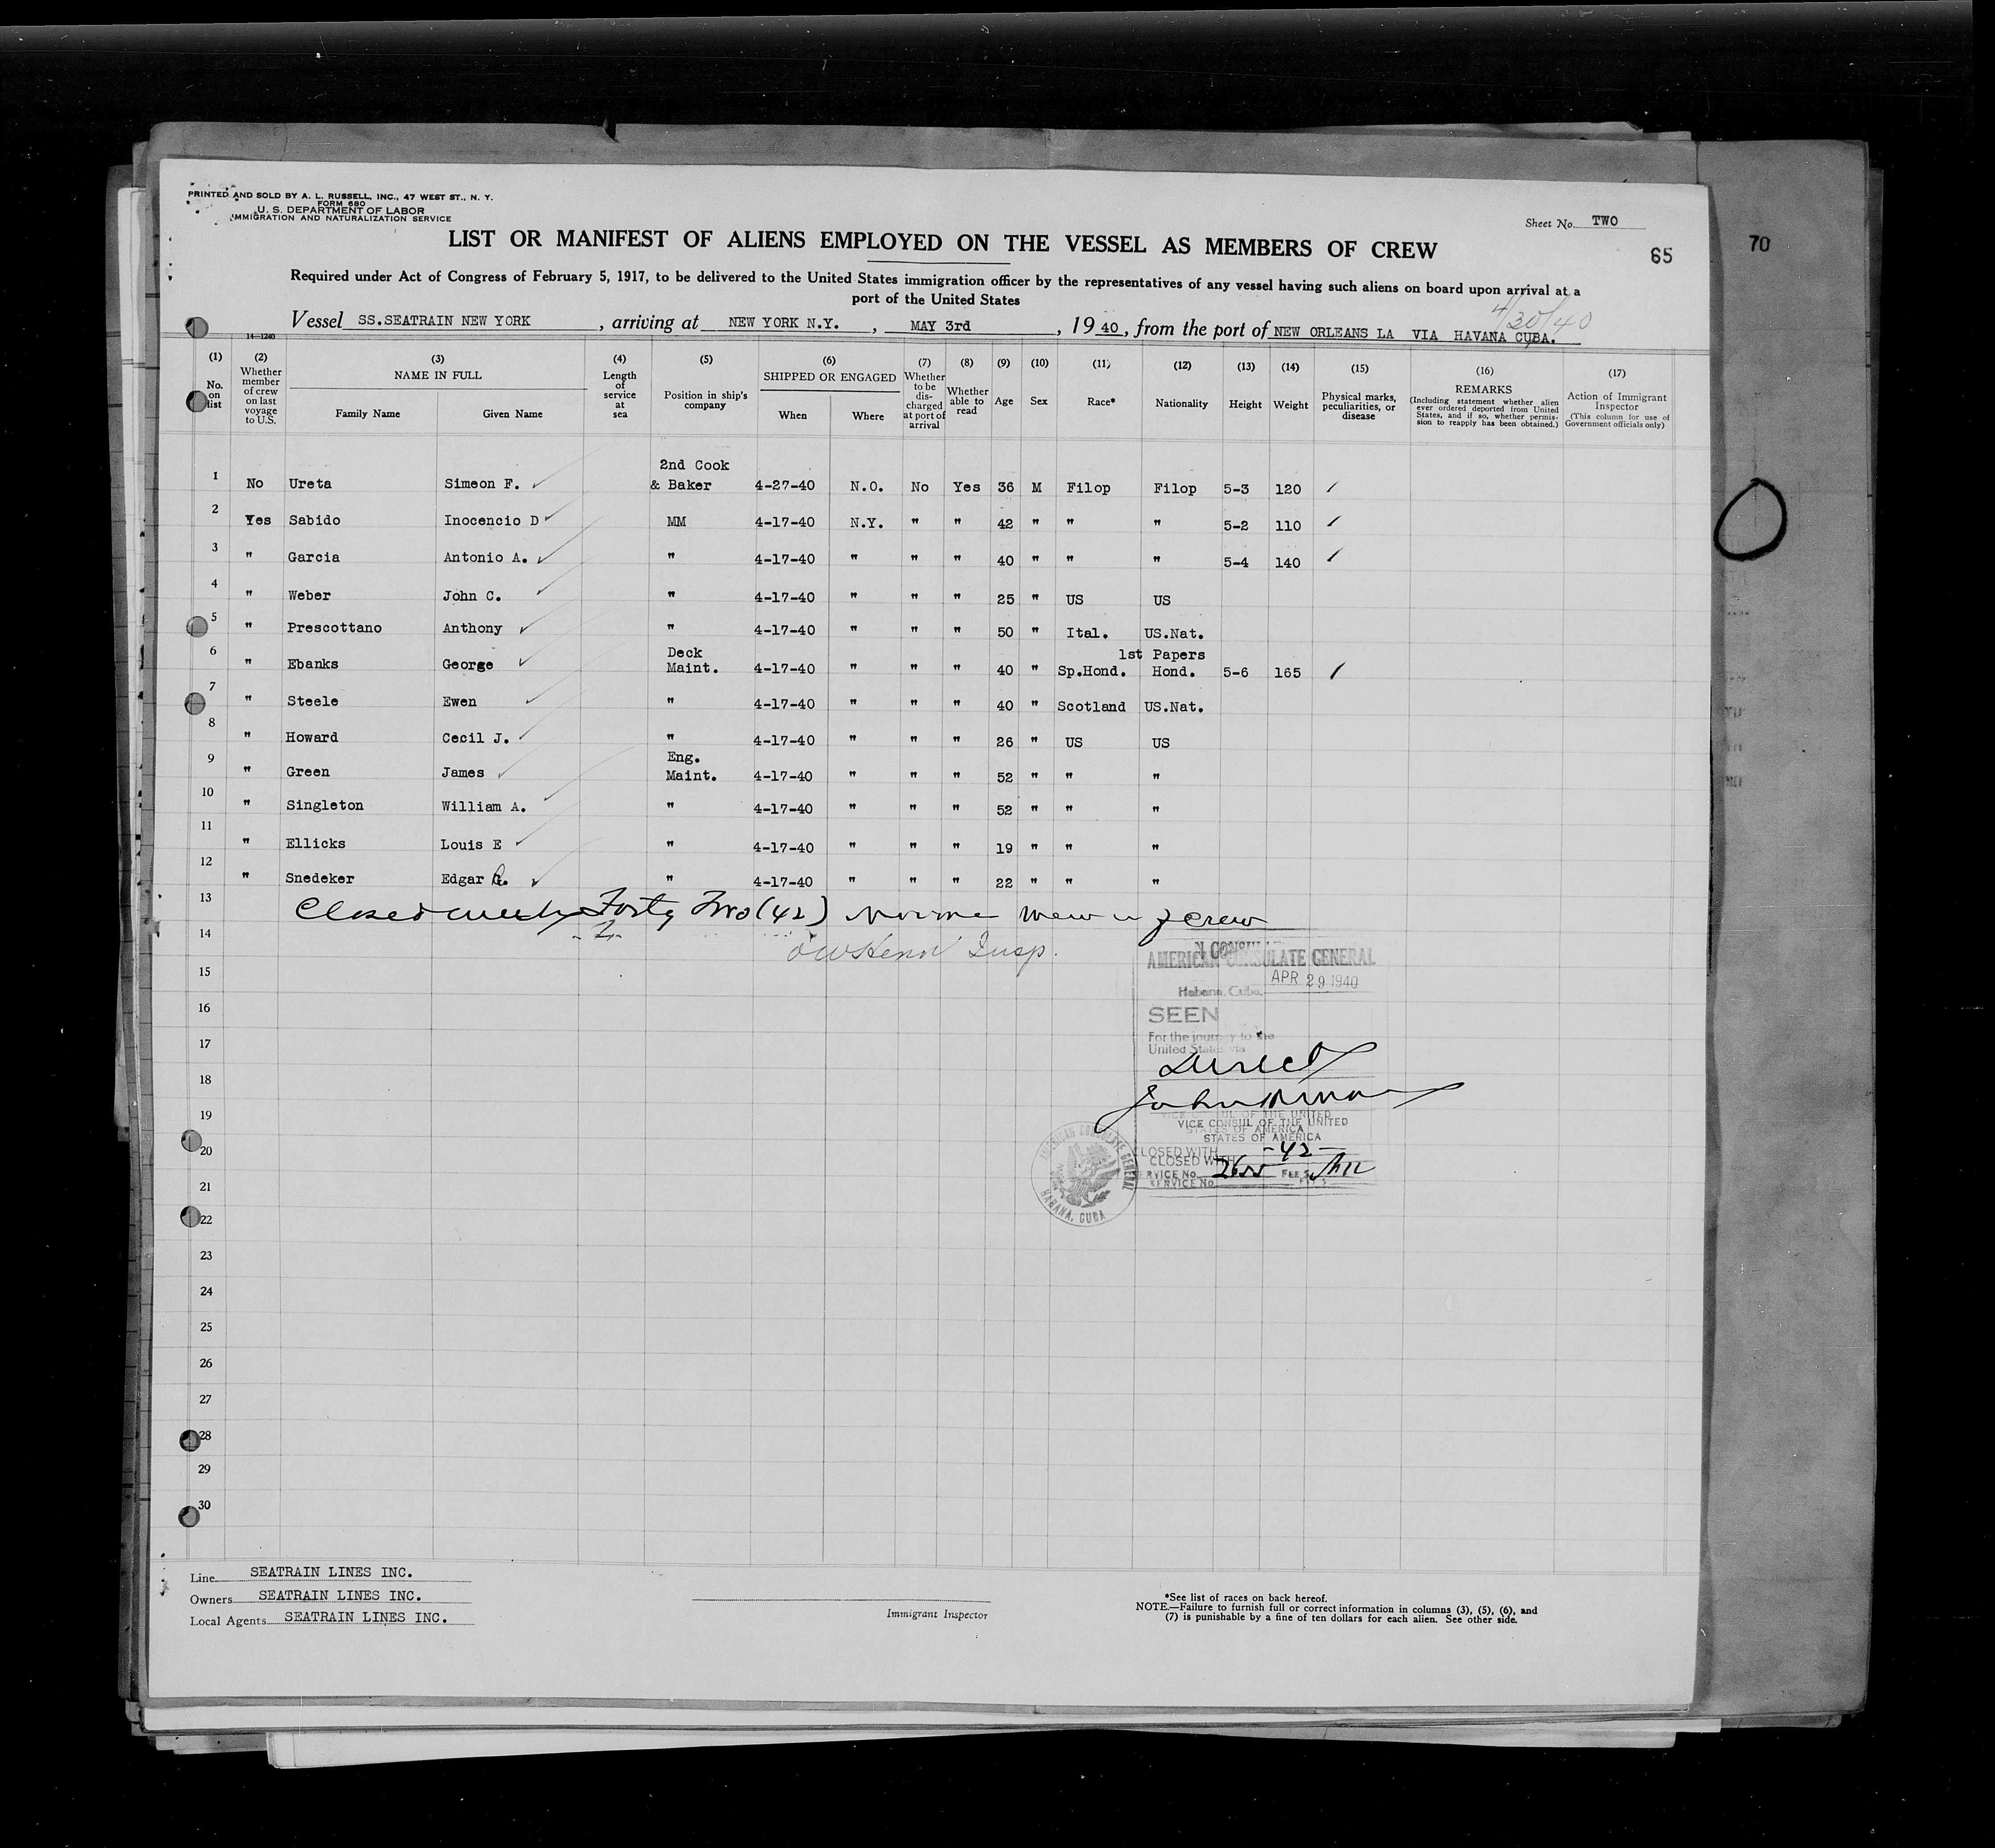 PRINTED AND SOLD BY A. L. RUSSELL, INC., 47 WEST ST., N. Y.
FORM 680
U. S. DEPARTMENT OF LABOR
IMMIGRATION AND NATURALIZATION SERVICE
Sheet No. TWO
LIST OR MANIFEST OF ALIENS EMPLOYED ON THE VESSEL AS MEMBERS OF CREW
65
70
Required under Act of Congress of February 5, 1917, to be delivered to the United States immigration officer by the representatives of any vessel having such aliens on board upon arrival at a
port of the United States
4/30/40
Vessel SS.SEATRAIN NEW YORK , arriving at NEW YORK N.Y. , MAY 3rd , 1940, from the port of NEW ORLEANS LA VIA HAVANA CUBA.
14-1240
(1) No. on list (2) Whether member of crew on last voyage to U.S. (3) NAME IN FULL Family Name Given Name (4) Length of service at sea (5) Position in ship's company (6) SHIPPED OR ENGAGED When Where (7) Whether to be discharged at port of arrival (8) Whether able to read (9) Age (10) Sex (11) Race* (12) Nationality (13) Height (14) Weight (15) Physical marks, peculiarities, or disease (16) REMARKS (Including statement whether alien ever ordered deported from United States, and if so, whether permission to reapply has been obtained.) (17) Action of Immigrant Inspector (This column for use of Government officials only)
2nd Cook
1 No Ureta Simeon F. & Baker 4-27-40 N.O. No Yes 36 M Filop Filop 5-3 120
2 Yes Sabido Inocencio D MM 4-17-40 N.Y. " " 42 " " " 5-2 110
3 " Garcia Antonio A. " 4-17-40 " " " 40 " " " 5-4 140
4 " Weber John C. " 4-17-40 " " " 25 " US US
5 " Prescottano Anthony " 4-17-40 " " " 50 " Ital. US.Nat.
Deck 1st Papers
6 " Ebanks George Maint. 4-17-40 " " " 40 " Sp.Hond. Hond. 5-6 165
7 " Steele Ewen " 4-17-40 " " " 40 " Scotland US.Nat.
8 " Howard Cecil J. " 4-17-40 " " " 26 " US US
Eng.
9 " Green James Maint. 4-17-40 " " " 52 " " "
10 " Singleton William A. " 4-17-40 " " " 52 " " "
11 " Ellicks Louis E " 4-17-40 " " " 19 " " "
12 " Snedeker Edgar G. " 4-17-40 " " " 22 " " "
13 Closed with Forty Two (42) crew
14 Insp.
AMERICAN CONSULATE GENERAL
15
Habana, Cuba, APR 29 1940
16 SEEN
17 For the journey to the
United States via
Direct
18
19
VICE CONSUL OF THE UNITED
STATES OF AMERICA
20 CLOSED WITH -42-
SERVICE No. FEES
AMERICAN CONSULATE GENERAL
HABANA, CUBA
21
22
23
24
25
26
27
28
29
30
Line SEATRAIN LINES INC.
Owners SEATRAIN LINES INC.
Local Agents SEATRAIN LINES INC.
Immigrant Inspector
*See list of races on back hereof.
NOTE.—Failure to furnish full or correct information in columns (3), (5), (6), and
(7) is punishable by a fine of ten dollars for each alien. See other side.